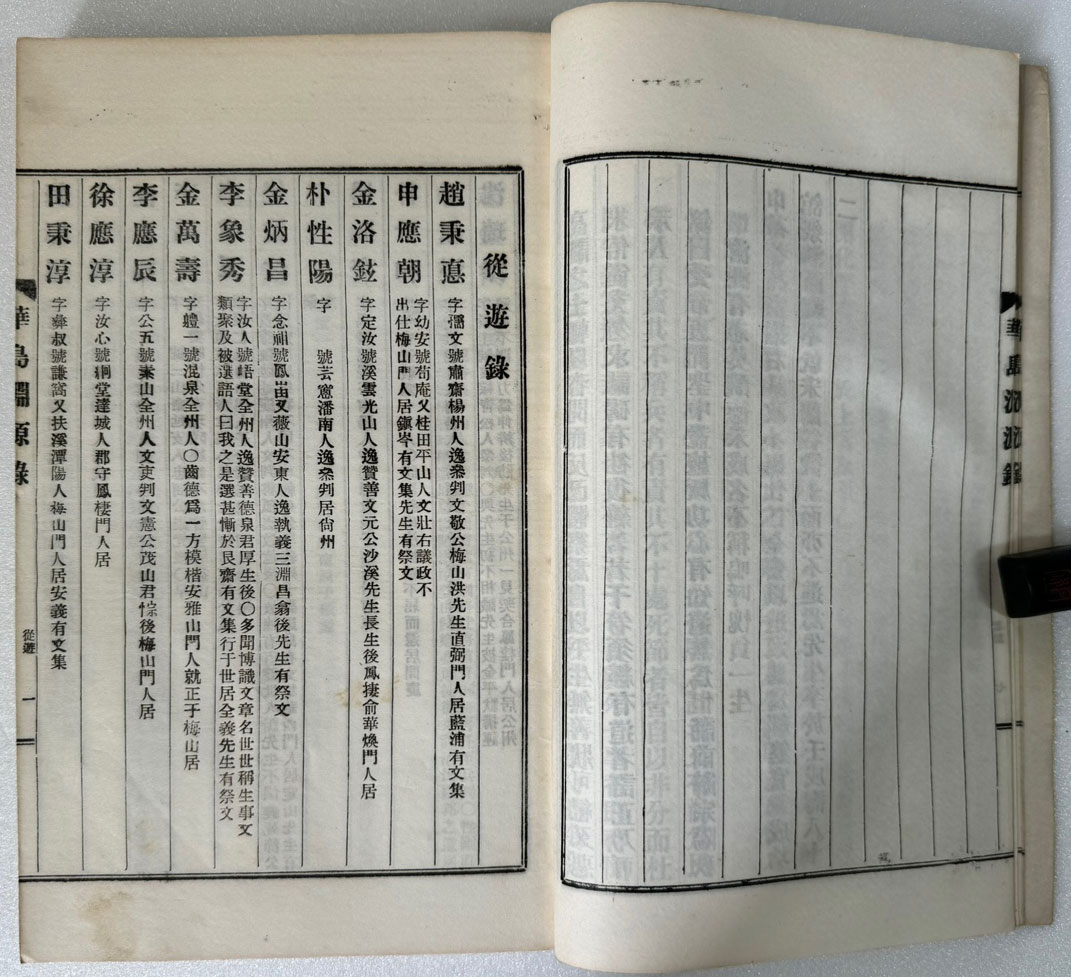 華島淵源錄
從遊錄
趙秉悳 字孺文號肅齋楊州人逸叅判文敬公梅山洪先生直弼門人居藍浦有文集
申應朝 字幼安號苟庵又桂田平山人文壯右議政不
出仕梅山門人居鎭岑有文集先生有祭文
金洛鉉 字定汝號溪雲光山人逸贊善文元公沙溪先生長生後鳳捿俞華煥門人居
朴性陽 字 號芸窻潘南人逸叅判居尙州
金炳昌 字念祖號鳳峀又薇山安東人逸執義三淵昌翕後先生有祭文
李象秀 字汝人號峿堂全州人逸贊善德泉君厚生後〇多聞博識文章名世世稱生事文
類聚及被選語人曰我之是選甚慚於艮齋有文集行于世居全義先生有祭文
金萬壽 字軆一號混泉全州人〇齒德爲一方模楷安雅山門人就正于梅山居
李應辰 字公五號素山全州人文吏判文憲公茂山君悰後梅山門人居
徐應淳 字汝心號絅堂達城人郡守鳳棲門人居
田秉淳 字彝叔號謙窩又扶溪潭陽人梅山門人居安義有文集
華島淵源錄
從遊
一